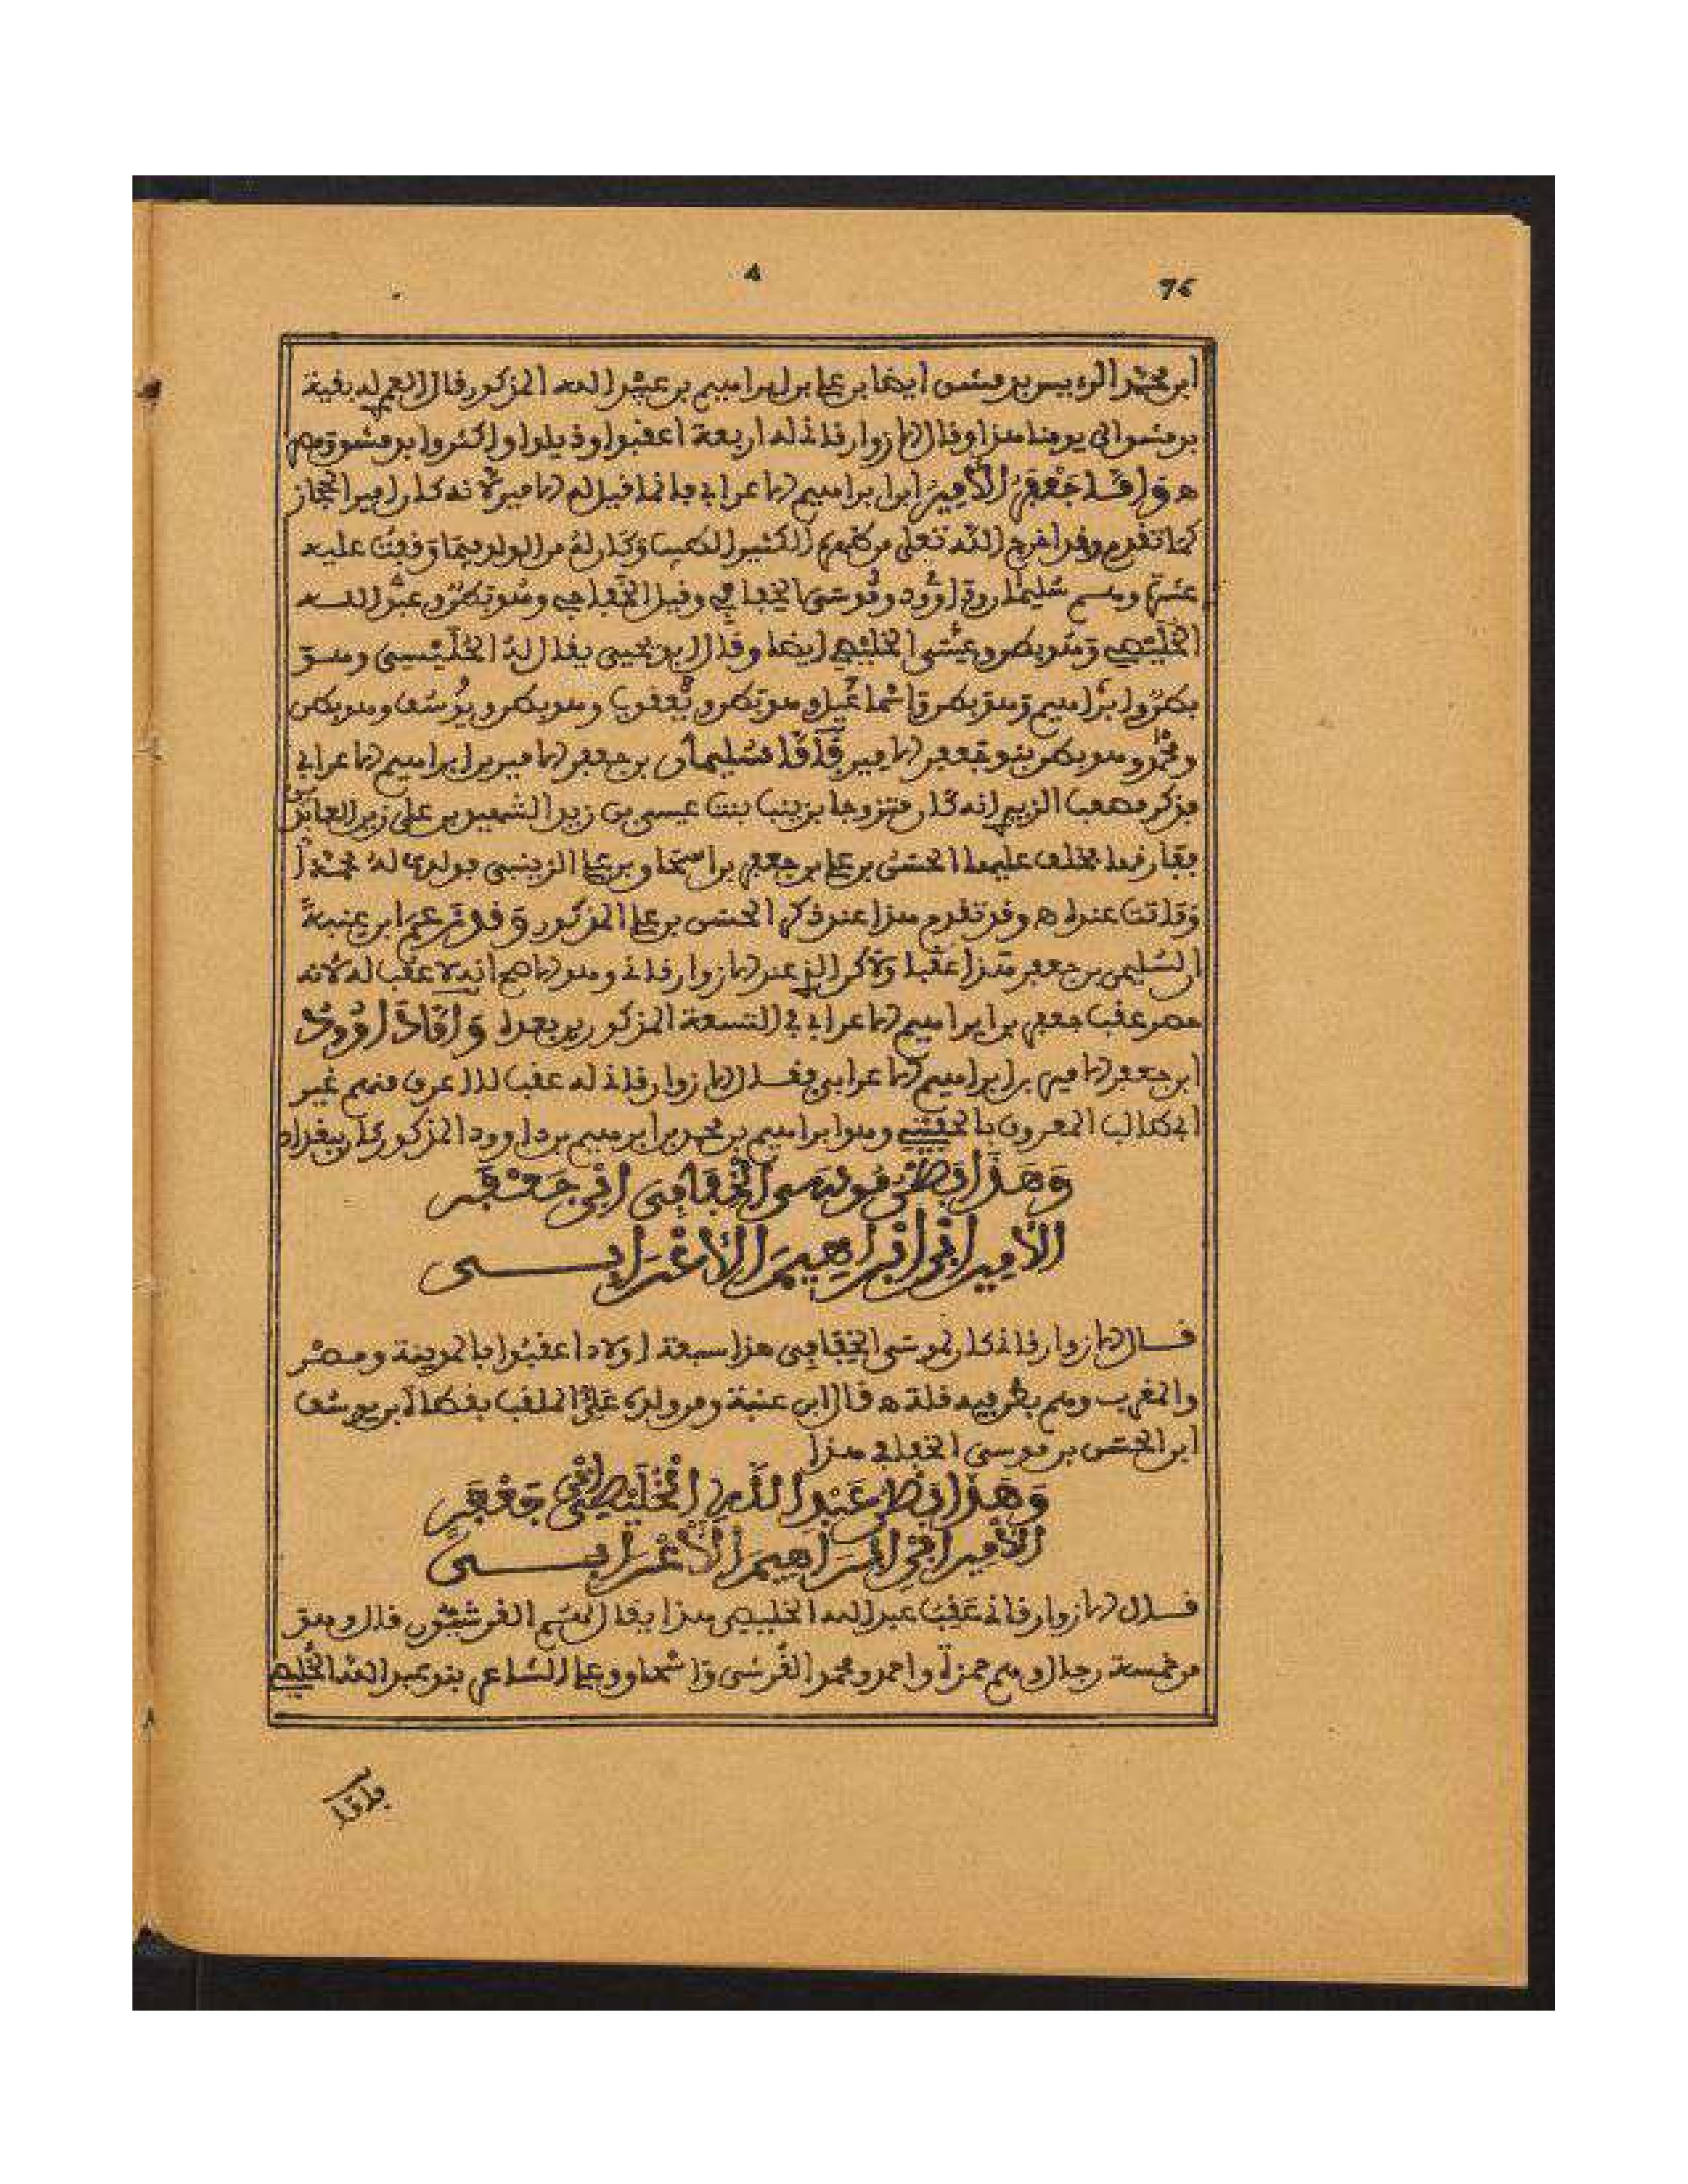 4
76
ابن محمد الرئيس بدمشق ايضا بن علي بن ابراهيم بن عبد الله المذكور قال العم له بقية
بدمشق الى يومنا هذا وقال الازوارقاني له اربعة اعقبوا وذيلوا واكثروا بدمشق وهم
ه وَاَمَّا جَعْفَرُ الْأَمِيرُ ابن ابراهيم الاعرابي فانما قيل له الامير لانه كان امير الحجاز
كما تقدم وقد اخرج الله تعلى من الكثير الطيب وَكان له من الولد فيما وَقفتُ عليه
عشرة وهم سُليمان وداوُود ومُوسى الخفافي وقيل الخفاجي وهُو بَطن وعبْد اللـه
الخُلَيْصِي وَهُو بطن وعيْسى الخليصي ايضا وقال ابو يحيى يقال لهُ الخُلَيْصِي وهو
بطن وابرَاهيم وَهو بطن وَاسْمَاعيل وهو بَطن ويَعْقوب وهو بطن ويُوسُف وهو بطن
ومحمد وهو بطن بنو جعفر الامير فَاَمَّا سُليمان بن جعفر الامير بن ابراهيم الاعرابي
فذكر مصعب الزبيري انه كان متزوجا بزينب بنت عيسى بن زيد الشهيد بن علي زين العابدين
ففارقها فخلف عليها الحسن بن علي بن جعفر بن اسحاق بن علي الزينبي فولدت لهُ محمداً
وَماتت عنده ه وقد تقدم هذا عند ذكر الحسن بن علي المذكور وَقد زعم ابن عنبةَ
ان لسُليمن بن جعفر هَذا عَقبا ولاكن الذي عند الازوارقاني وهو الاصح انه لا عقب له لانه
حصر عقب جعفر بن ابراهيم الاعرابي في التسعة المذكورين بعده وَاَمَّا دَاوُودُ
ابن جعفر الامير بن ابراهيم الاعرابي فقال الازوارقاني له عقب لا اعرف منهم غير
الطالب المعروف بالخليصي وهو ابراهيم بن محمد بن ابرهيم بن داوود المذكور كان ببغداد
وَهَذَا بَطْنُ مُوسَى الْخَفَافِي ابْنِ جَعْفَر
الْأَمِيرِ ابْنِ ابْرَاهِيمَ الْأَعْرَابِـــي
قــال الازوارقاني كان لموسَى الخَفَافِي هذا سبعة اولاد اعقبُوا بالمدينة ومصْر
والمغرب وهم بطن فيه قلة ه قال ابن عنبة ومن ولده عَلِيُّ الملقب بقطاة بن يوسُف
ابن الحسَن بن موسى الخفافي هذا
وَهَذَا بَطْنُ عَبْدِ اللَّهِ الْخُلَيْصِي ابْنِ جَعْفَرِ
الْأَمِيرِ ابْنِ ابْرَاهِيمَ الْأَعْرَابِـــي
قــال الازوارقاني عَقِبُ عبد الله الخليصي هذا يقال لهُم القرشيُّون قال وهو
من خمسة رجال وهم حمزة واحمد ومحمد القُرَشي وَاسْحاق وعلي الشاعر بنو عبد الله الخُليصي
فاما